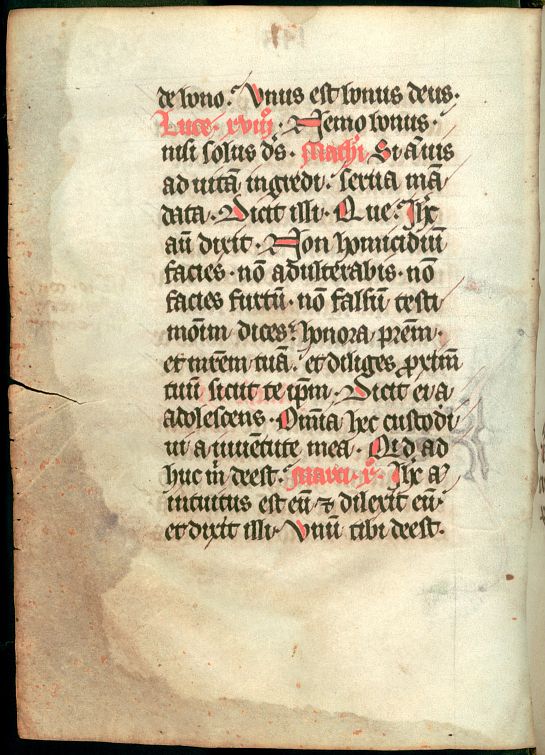 de bono. Unus est bonus deus.
Luce. xviij. Nemo bonus.
nisi solus ds̄. Math̄. Si aūt uis
ad uitā ingredi. serua mā
data. Dicit illi. Que. Ih̄c
aū dixit. Non homicidiū
facies. nō adulterabis. nō
facies furtū. nō falsū testi
moīm dices. honora prēm.
et mrēm tuā. et diliges ꝓximū
tuū sicut te ip̄m. Dicit ei a
adolescens. Om̄ia hec custodi
ui a iuuētute mea. Qid ad
huc m̄ deest. Marci. x. Ih̄c a
intuitus est eū ⁊ dilexit eū.
et dixit illi. Unū tibi deest.